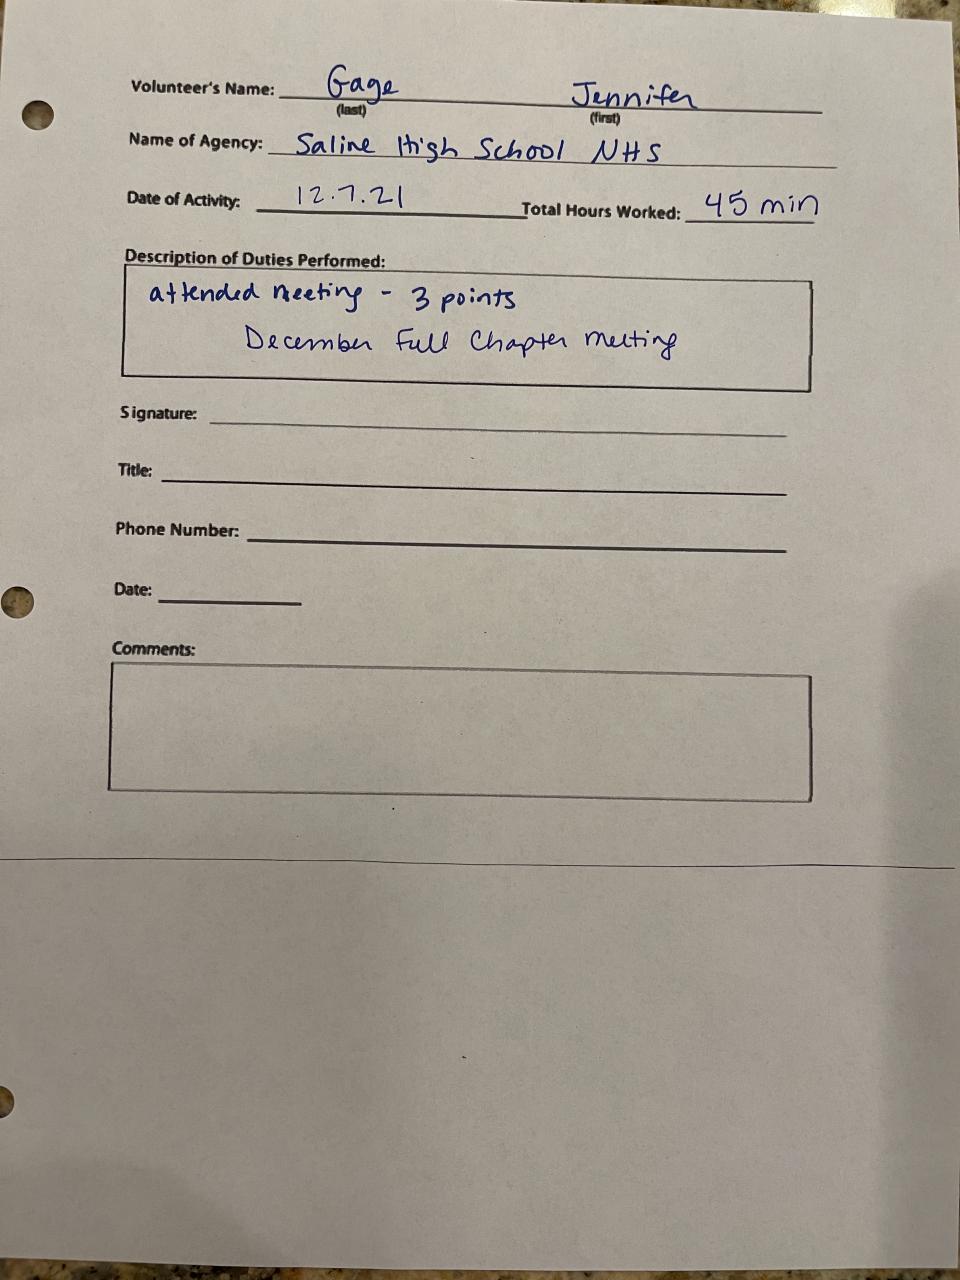 Volunteer's Name: Gage Jennifer
(last) (first)
Name of Agency: Saline High School NHS
Date of Activity: 12.7.21 Total Hours Worked: 45 min
Description of Duties Performed:
attended meeting - 3 points
December Full Chapter meeting
Signature:
Title:
Phone Number:
Date:
Comments: